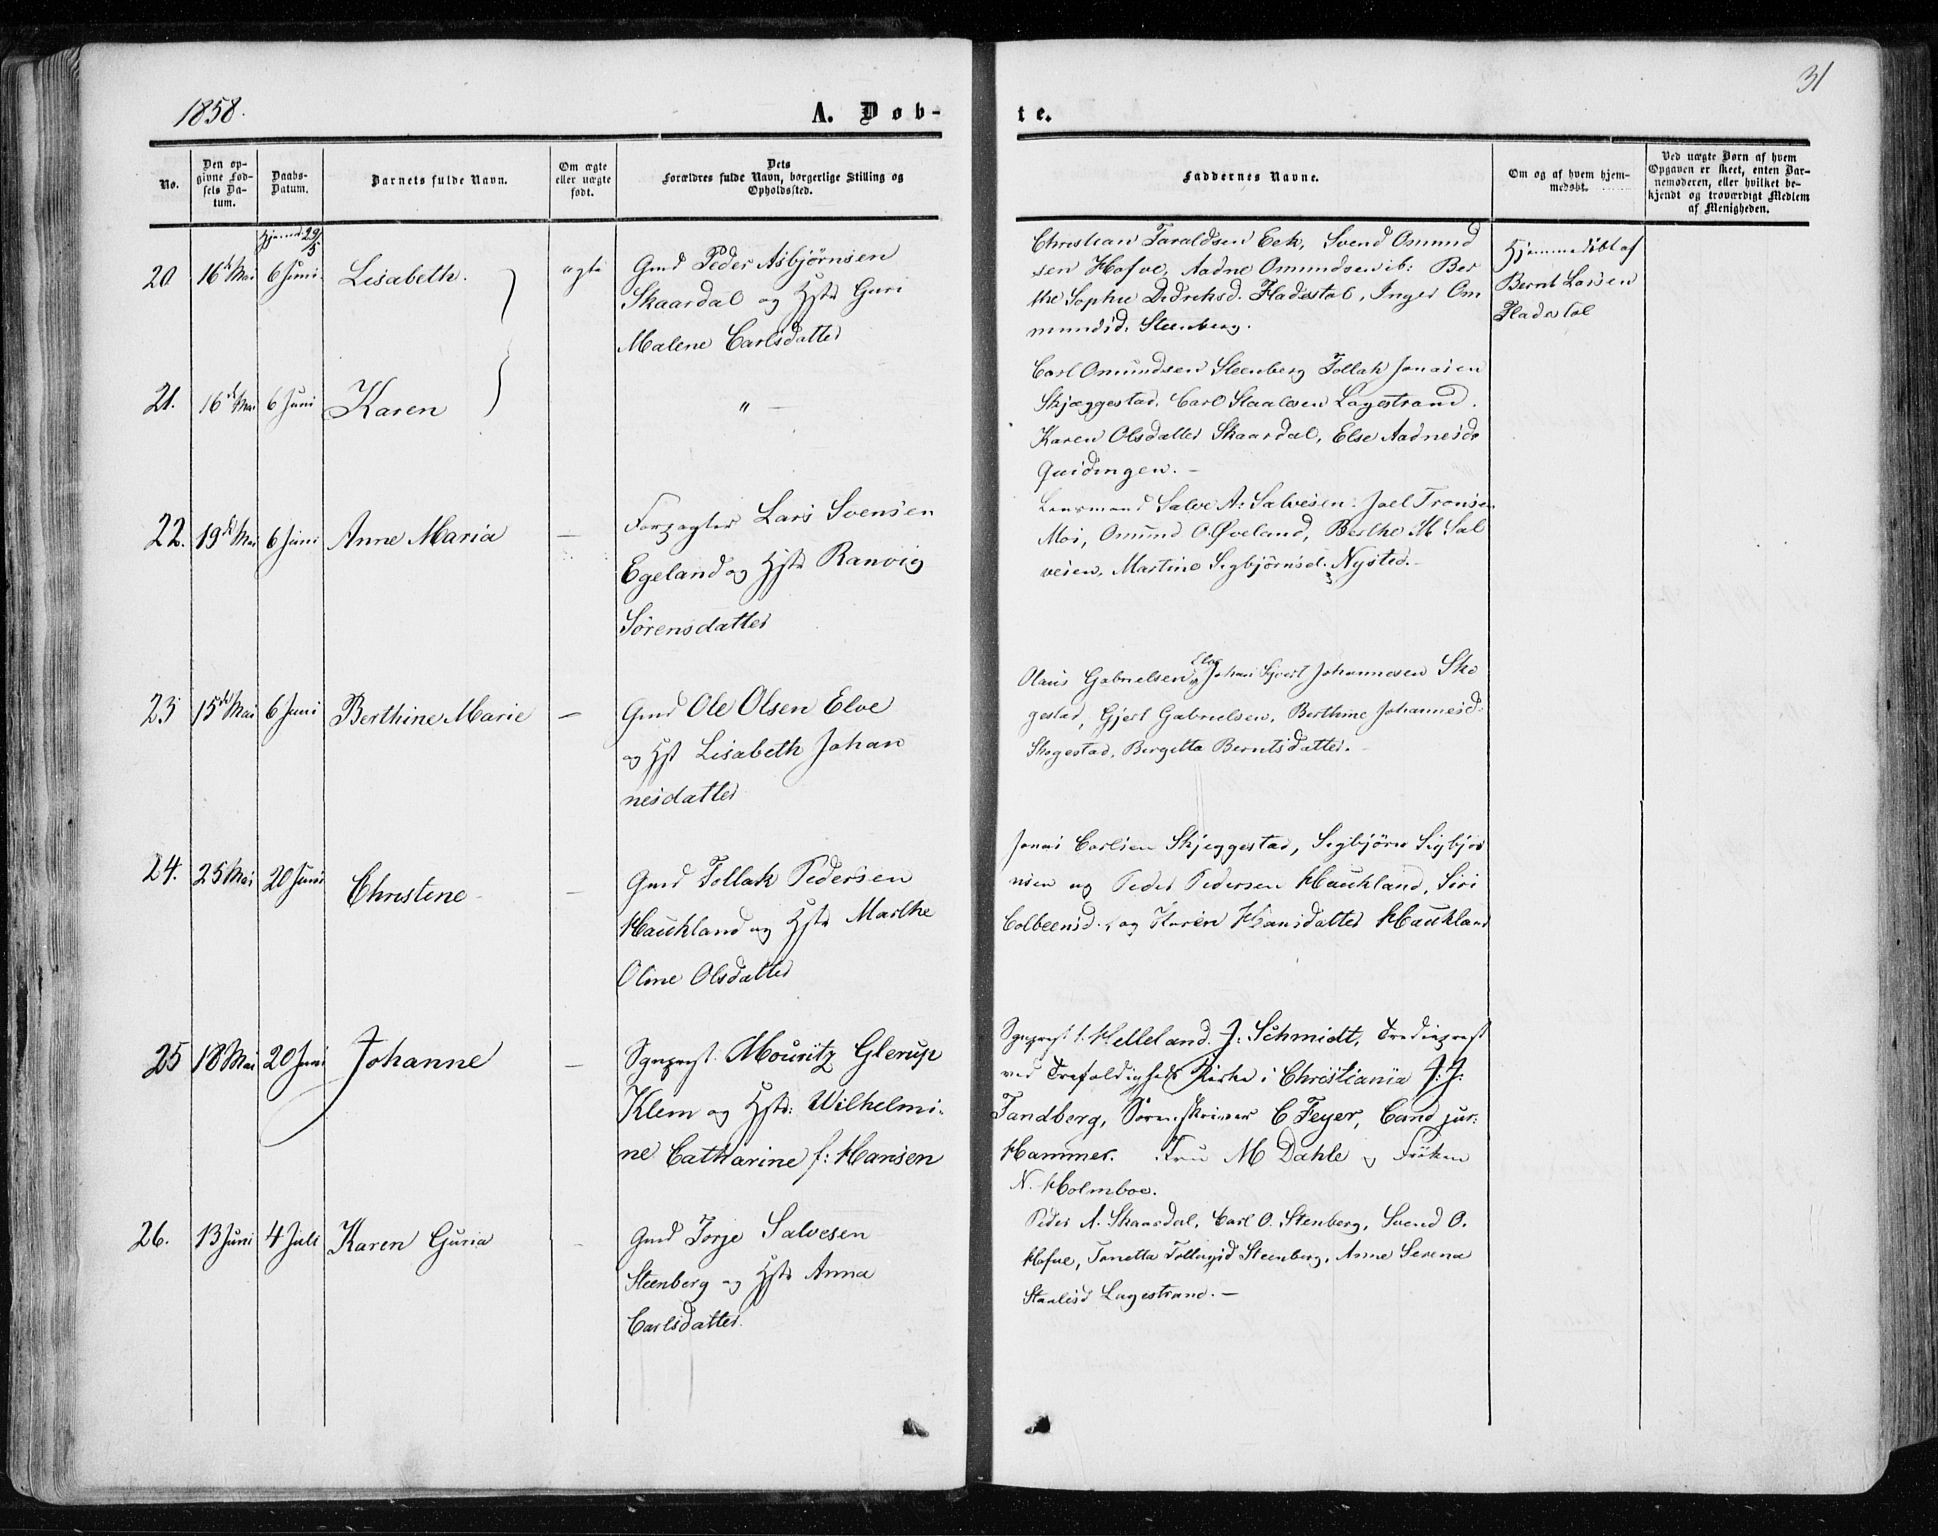 31
1858.
A. Døb-
te.
No.
Den op-
givne Fød-
sels Da-
tum.
Daabs-
Datum.
Barnets fulde Navn.
Om ægte
eller uægte
født.
Dets
Forældres fulde Navn, borgerlige Stilling og
Opholdssted.
Faddernes Navne.
Om og af hvem hjem-
medøbt.
Ved uægte Børn af hvem
Opgaven er skeet, enten Bar-
nemoderen, eller hvilket be-
kjendt og troværdigt Medlem
af Menigheden.
20
16de Mai
Hjemmed 29/5
6 Juni
Lisabeth.
ægte
Gmd Peder Asbjørnsen
Skaardal og Hst. Guri
Malene Carlsdatter
Christian Taraldsen Eek, Svend Omund
sen Hofve, Aadne Omundsen ib: Ber
the Sophie Didriksd. Fladestøl, Inger Om
mundsd. Steenberg.
Hjemmedöbt af
Bernt Larsen
Fladestöl
21.
16de Mai
6 Juni
Karen
" —
Carl Omundsen Steenberg Tollak Jonasen
Skjæggestad. Carl Staalesen Lagestrand.
Karen Olsdatter Skaardal, Else Aadnesd.
Qvidingen. –
22.
19de Mai
6 Juni
Anne Maria
—
Forpagter Lars Svensen
Egeland og Hst. Ranvig
Sörensdatter
Lensmand Salve A: Salvesen. Joel Tronsen
Moi, Omund O. Øveland, Berthe M. Sal
vesen, Martine Sigbjörnsd. Nysted.–
23
15de Mai
6 Juni
Berthine Marie
—
Gmd Ole Olsen Elve
og Hst Lisabeth Johan
nesdatter
Olaus Gabrielsen Elve, Johan Sivert Johannesen Sko
gestad, Gjert Gabrielsen, Berthine Johannesd.
Skogestad, Bergitta Berntsdatter.
24.
25 Mai
20 Juni
Christine
—
Gmd Tollak Pedersen
Haukland og Hst. Marthe
Oline Olsdatter
Jonas Carlsen Skjeggestad, Sigbjörn Sigbjör
nsen og Peder Pedersen Haukland, Siri
Colbeensd. og Karen Hansdatter Haukland
25
18 Mai
20 Juni
Johanne
—
Sgnprest Mouritz Glerup
Klem og Hst: Wilhelmi-
ne Catharine f: Hansen
Sgnprest t. Helleland J. Schmidt, Trediprest
ved Trefoldigheds Kirke i Christiania J: J:
Tandberg, Sorenskriver C Feyer, Cand jur:
Hammer. Fru M Dahle og Fröken
N. Holmboe.
26.
13 Juni
4 Juli
Karen Guria
–
Gmd Torje Salvesen
Steenberg og Hst. Anna
Carlsdatter.
Peder A. Skaardal, Carl O. Stenberg, Svend O.
Hofve, Tonetta Tollagsd Steenberg, Anne Serena
Staalesd Lagestrand. –